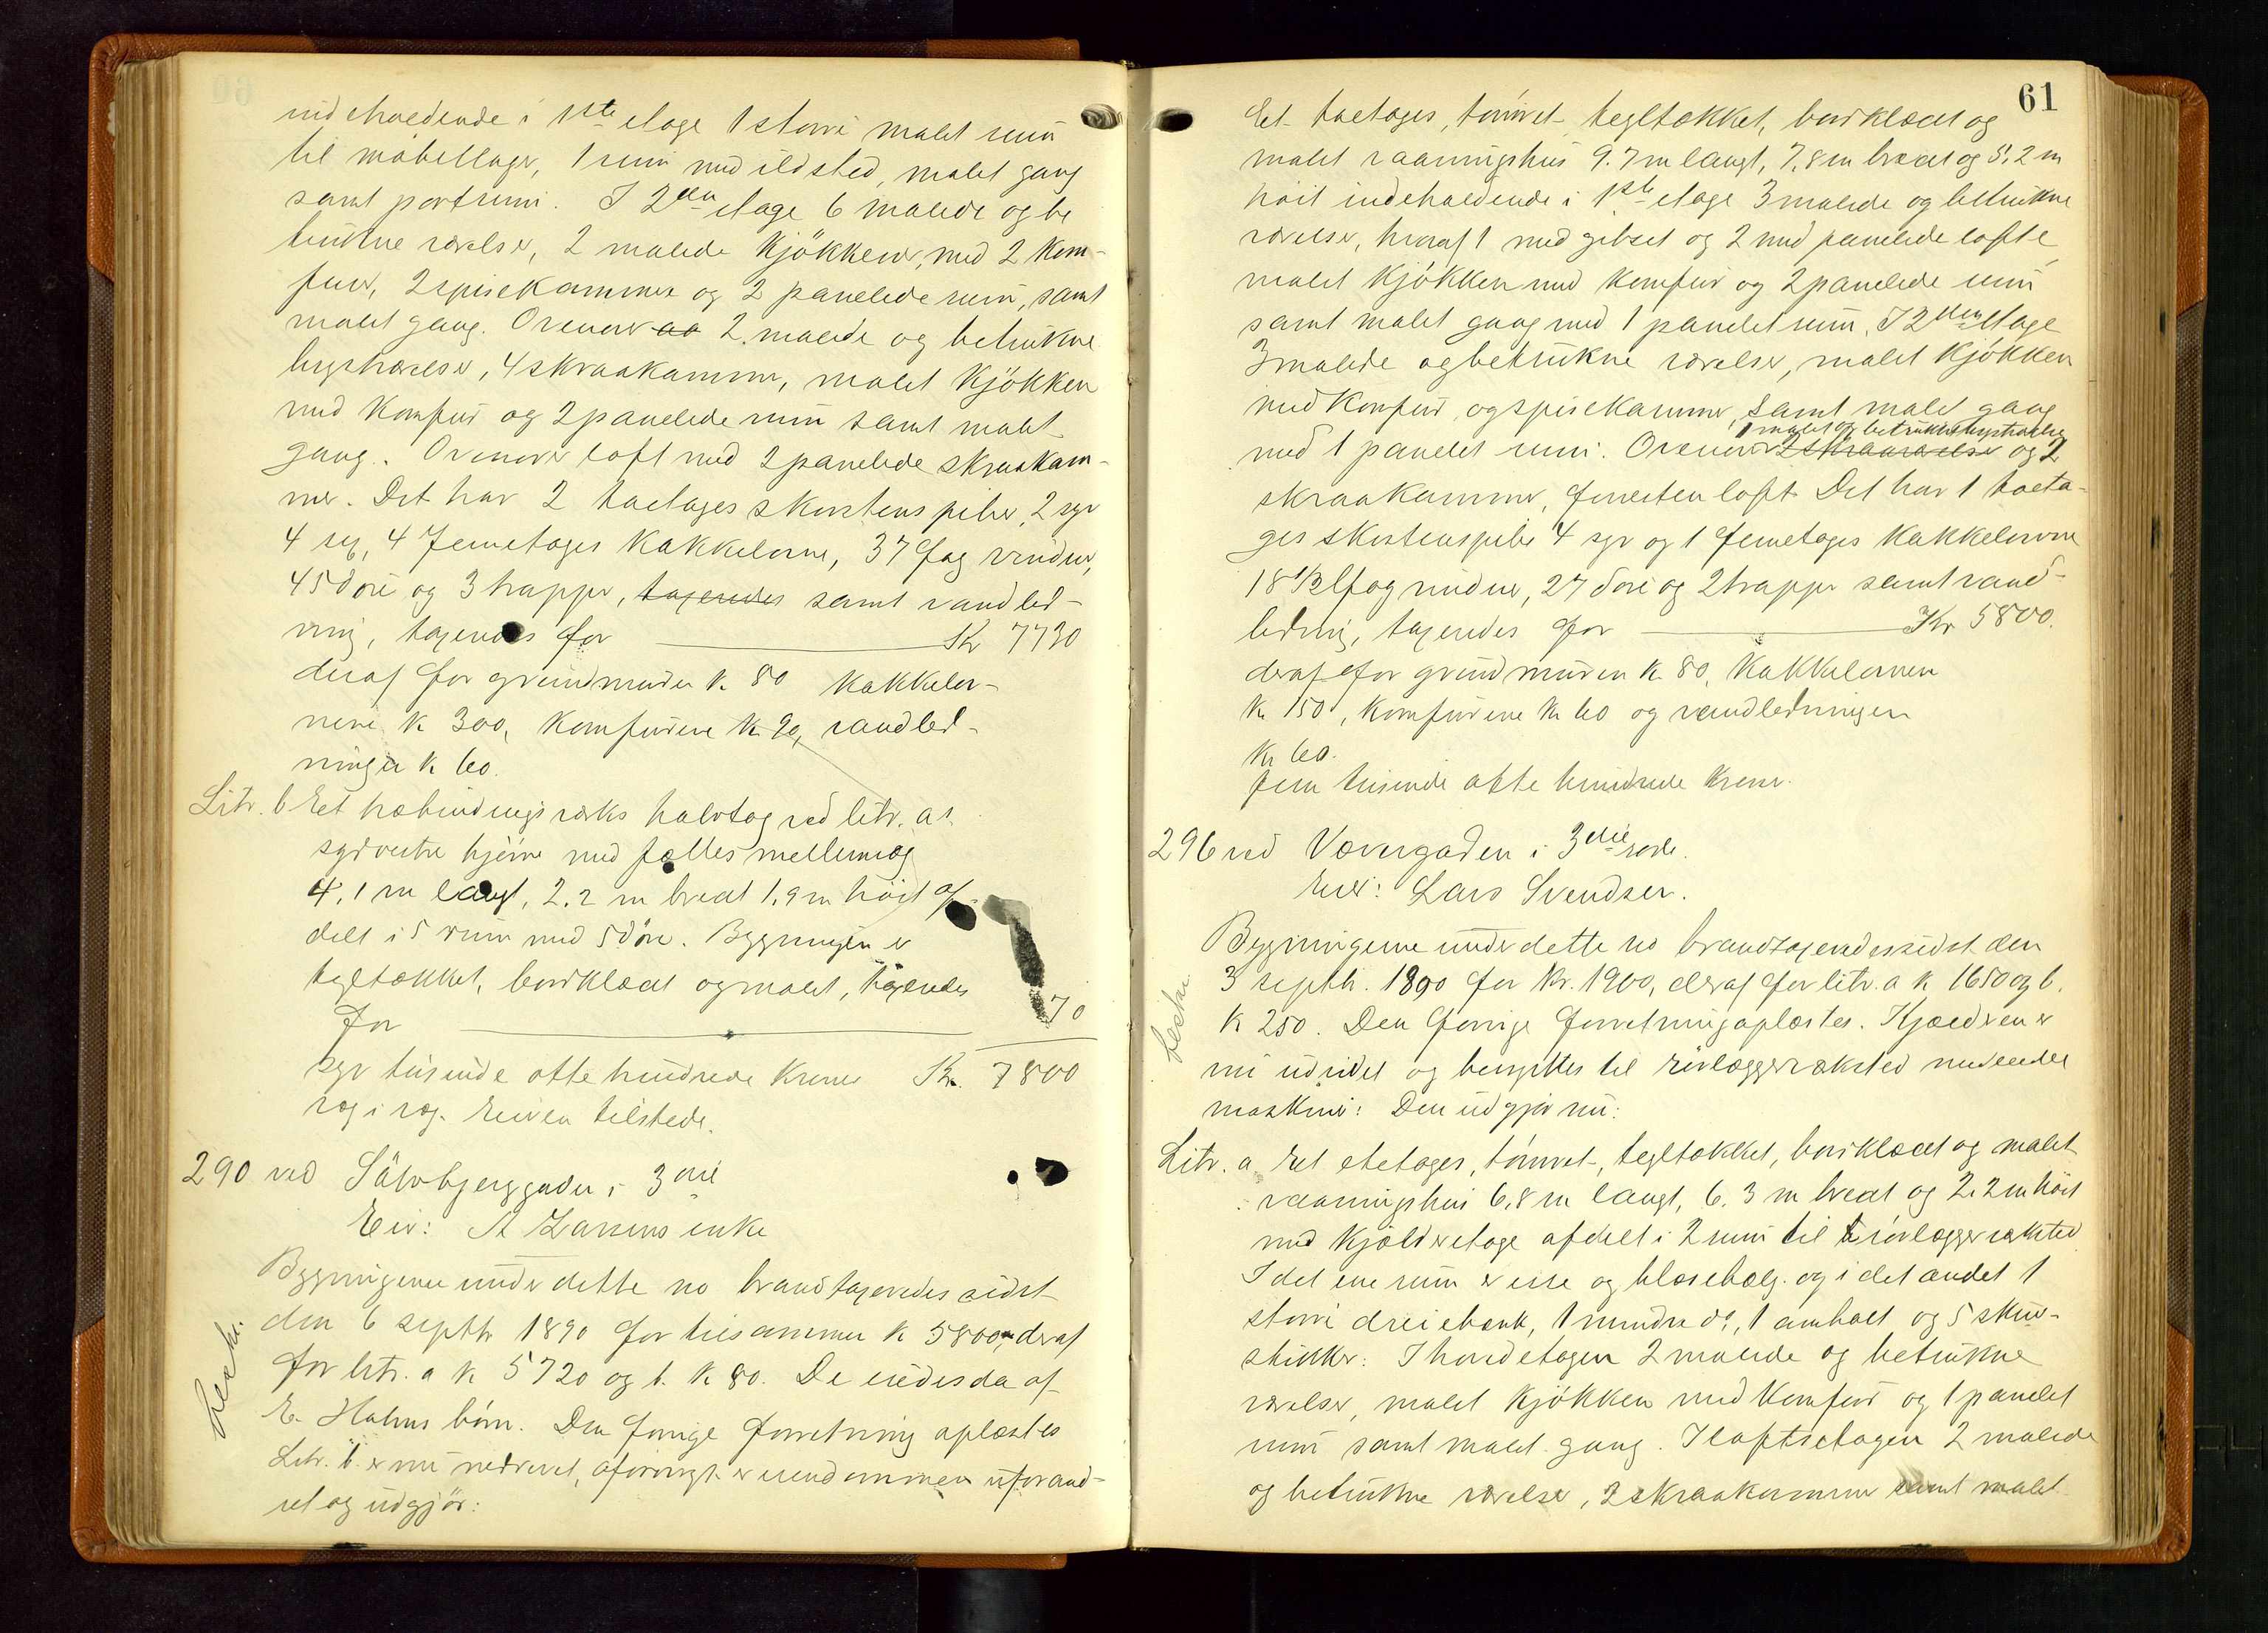 indeholdende i 1ste etage 1 større malet rum
til møbellager, 1 rum med ildsted, malet gang
samt portrum. I 2den etage 6 malede og be
trukne værelser, 2 malede kjøkkener, med 2 kom-
furer, 2 spisekammer og 2 panelede rum, samt
malet gang. Ovenover aa 2 malede og betrukne
kvistværelser, 4 skraakammer, malet kjøkken
med komfur og 2 panelede rum samt malet
gang. Ovenover loft med 2 panelede skraakam-
mer. Det har 2 toetages skorstenspiber, 2 syv
4 sex, 4 femetages kakkelovne, 37 fag vinduer,
45 døre og 3 trapper, taxeredes samt vandled-
ning, taxeredes for Kr 7730
deraf for grundmuren k. 80 kakkelov-
nene k 300, komfurene k. 90, vandled-
ningen k 60.
Litr. b Et halvtag ved litr. a's
sydvestre hjørne med fælles mellemvæg
4,1 m langt, 2.2 m bredt 1.9 m høit af-
delt i 5 rum med 5 døre. Bygningen er
tegltækket, bordklædt og malet, taxeredes
for 70
syv tusinde otte hundrede kroner Kr. 7800
Eieren tilstede.
290 ved Sølvbjerggaden i 3die
Eier: A Larsens enke
Bygningerne under dette no brandtaxeredes sidst
den 6 septbr 1890 for tilsammen k 5800, deraf
for litr. a k 5720 og b. k 80. De eiedes da af
E. Holms børn. Den forrige forretning oplæstes
Litr. b er nu nedrevet, forøvrigt er eiendommen uforand-
ret og udgjør:
Beskr.
61
Et toetages, tømret tegltækket, bordklædt og
malet vaaningshus 9.7 m langt, 7,8 m bredt og 5,2 m
høit indeholdende i 1ste etage 3 malede og betrukne
værelser, hvoraf 1 med gibset og 2 med panelede lofte,
malet kjøkken med komfur og 2 panelede rum
samt malet gang med 1 panelet rum. I 2den etage
3 malede og betrukne værelser, malet kjøkken
med komfur og spisekammer, samt malet gang
1 malet og betrukket kvistværelse
med 1 panelet rum. Ovenover 2 skraaværelser og 2
skraakammer, forresten loft. Det har 1 toeta-
ges skorstenspibe 4 syv og 1 femetages kakkelovne
18 1/2 fag vinduer, 27 døre og 2 trapper samt vand-
ledning, taxeredes for Kr 5800.
deraf for grundmuren k 80, kakkelovnene
k 150, komfurene k 60 og vandledningen
kr 60.
fem tusinde otte hundrede kroner.
296 ved Vævergaden i 3die rode.
Eier: Lars Svendsen.
Bygningerne under dette no brandtaxeredes sidst den
3 septbr. 1890 for kr. 1900, deraf for litr. a k 1650 og b.
k 250. Den forrige forretning oplæstes. Kjælderen er
nu udvidet og benyttes til rørlæggerværksted med endel
maskiner. Den udgjør nu:
Beskr.
Litr. a Et etetages, tømret, tegltækket, bordklædt og malet
vaaningshus 6,8 m langt, 6.3 m bredt og 2.2 m høit
med kjælderetage afdelt i 2 rum til rørlæggerværksted
I det ene rum er esse og blæsebælg og i det andet 1
større dreiebænk, 1 mindre do, 1 ambolt og 5 skru-
stikker. I hovedetagen 2 malede og betrukne
værelser, malet kjøkken med komfur og 1 panelet
rum samt malet gang. I loftsetagen 2 malede
og betrukne værelser, 2 skraakammer samt malet